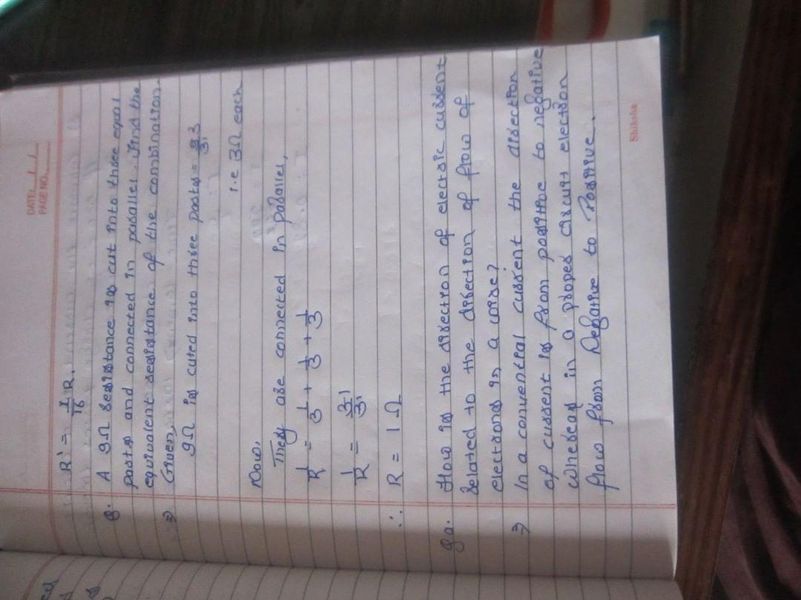 DATE: / /
PAGE NO.:
R' = 1/16 R.
Q. A 9Ω resistance is cut into three equal
parts and connected in parallel. Find the
equivalent resistance of the combination.
⇒ Given,
9Ω is cuted into three parts = 9 3/3
i.e 3Ω each
Now,
They are connected in parallel,
1/R = 1/3 + 1/3 + 1/3
1/R = 3 1/3 1
∴ R = 1 Ω
How is the direction of electric current
related to the direction of flow of
electrons in a wire?
⇒ In a conventral current the direction
of current is from positive to negative
whereas in a proper circuit electron
flow from Negative to Positive.
Shiksha